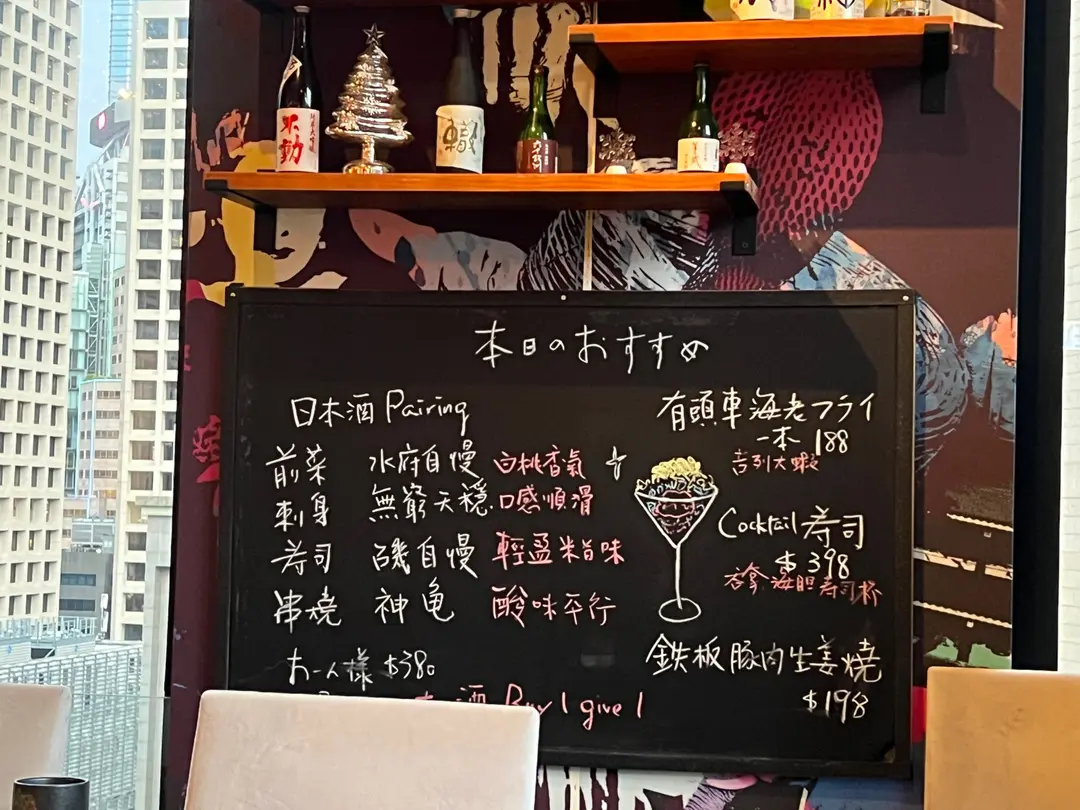 不動
轍
本日のおすすめ
日本酒 Pairing
前菜 水府自慢 白桃香氣
刺身 無窮天穏 口感順滑
寿司 磯自慢 輕盈米旨味
串燒 神亀 酸味平行
お一人様 $380
酒 Buy 1 give 1
有頭車海老フライ
一本 188
吉列大蝦
Cocktail 寿司
$398
海胆寿司杯
鉄板豚肉生姜燒
$198